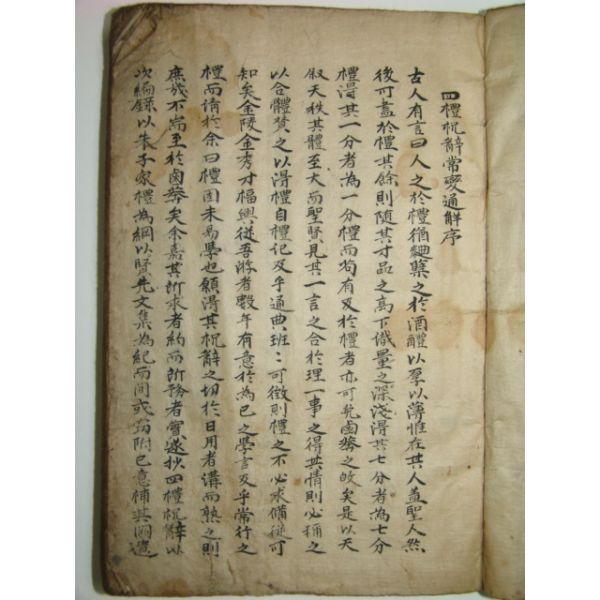 四禮祝辭常變通解序
古人有言曰人之於禮猶麹蘖之於酒醴以厚以薄惟在其人盖聖人然
後可盡於禮其餘則随其才品之高下儀量之深淺得其七分者為七分
禮得其一分者為一分禮而苟有及於禮者亦可免鹵莾之故矣是以天
叙天秩其體至大而聖賢見其一言之合於理一事之得其情則必稱之
以合體賛之以得禮自禮記及乎通典班〻可徴則禮之不必求備從可
知矣金陵金秀才福興從吾游者數年有意於為已之學言及乎常行之
禮而請於余曰禮固未易學也願得其祝辭之切於日用者講而熟之則
庶幾不耑至於鹵莾矣余嘉其所求者約而所務者實遂抄四禮祝辭以
次編錄以朱子家禮為綱以賢先文集為紀而间或窃附已意補其闕遺